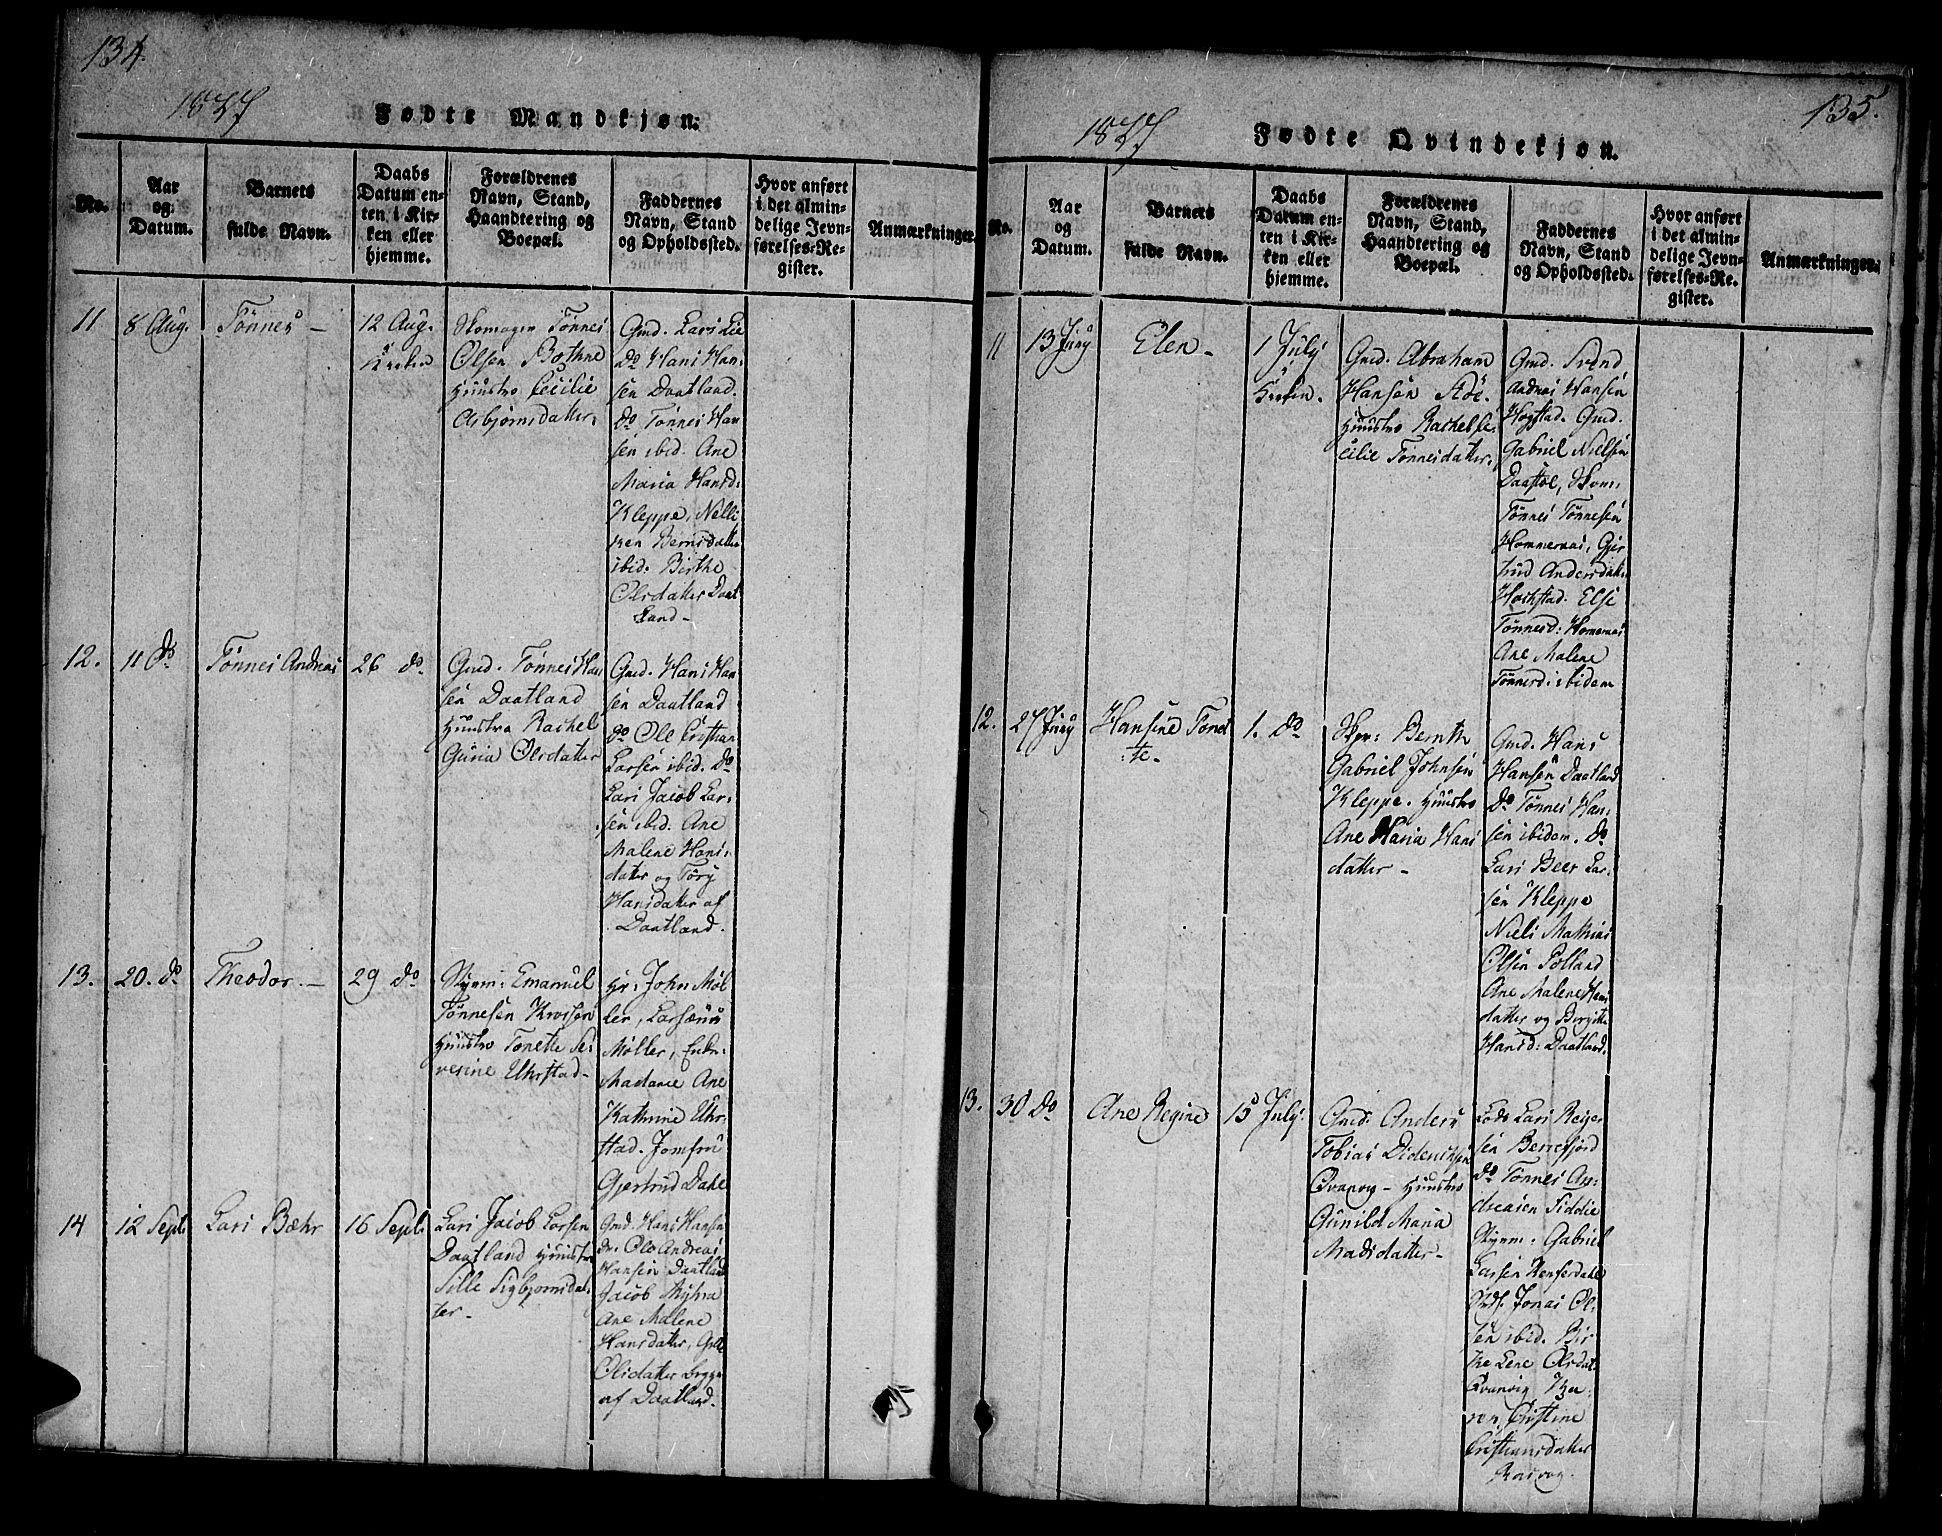 134.
1827
Fødte Mandkjøn.
No.
Aar
og
Datum.
Barnets
fulde Navn.
Daabs
Datum en-
ten i Kir-
ken eller
hjemme.
Forældrenes
Navn, Stand,
Haandtering og
Boepæl.
Faddernes
Navn, Stand
og Opholdssted.
Hvor anført
i det almin-
delige Jevn-
førelses-Re-
gister.
Anmærkninger.
11
8 Aug.
Tönnes -
12 Aug.
Kirken
Skomager Tönnes
Olsen Bothne
Hustro Cecilie
Asbjörnsdatter.
Gmd. Lars Lie
do Hans Han-
sen Daatland.
do Tönnes Han
sen ibid. Ane
Maria Hansd:
Kleppe, Nelli
ken Berntsdatter
ibid. Birthe
Olsdatter Daat
land -
12.
11 do
Tönnes Andreas
26 do
Gmd. Tönnes Han
sen Daatland
Hustro Rachel
Guria Olsdatter
Gmd. Hans Han-
sen Daatland
do Ole Cristian
Larsen ibid. do
Lars Jacob Lar-
sen ibid. Ane
Malene Hans-
datter og Töry
Hansdatter af
Daatland.
13.
20. do
Theodor. -
29 do
Styrm: Emanuel
Tönnesen
Hustro Tonette Se
verine Ehrstad -
Hr: John Möl
ler, Larsænus
Möller, Enke-
Madame Ane
Kathrine Ehr-
stad. Jomfru
Gjertrud Dahl
14
12 Sept.
Lars Bæhr
16 Sept.
Lars Jacob Larsen
Daatland Hustro
Sille Sigbjörnsdat-
ter -
Gmd. Hans Hansen
do. Ole Andreas
Hansen Daatland
Jacob Myhra
Ane Malene
Hansdatter,
Olsdatter
af Daatland.
135.
1827
Fødte Qvindekjøn.
No.
Aar
og
Datum.
Barnets
fulde Navn.
Daabs
Datum en-
ten i Kir-
ken eller
hjemme.
Forældrenes
Navn, Stand,
Haandtering og
Boepæl.
Faddernes
Navn, Stand
og Opholdssted.
Hvor anført
i det almin-
delige Jevn-
førelses-Re-
gister.
Anmærkninger.
11
13 Juny
Elen -
1 July
Kirken.
Gmd. Abraham
Hansen Aöe.
Hustro Rachel Ce-
cilie Tönnesdatter.
Gmd. Svend
Andreas Hansen
Hogstad. Gmd.
Gabriel Nielsen
Daastöl,
Tönnes Tönnesen
Hommernas, Gjer
trud Andersdat-
Hochstad. Else
Tönnesd: Homernas
Ane Malene
Tönnesd: ibidem
12.
27 Juny
Hansine Tonet
te -
1. do
Skpr: Bernth
Gabriel Johnsen
Kleppe. Hustro
Ane Maria Hans
datter -
Gmd. Hans
Hansen Daatland
do Tönnes Han-
sen ibidem. do
Lars Beer Lar-
sen Kleppe
Niels Mathias
Olsen Tolland
Ane Malene Hans
datter og Bergitte
Hansd: Daatland.
13.
30 do
Ane Regine
15 July.
Gmd: Anders
Tobias Didericksen
Qvanvig - Hustro
Gunild Maria
Madsdatter -
Lods Lars Reier
sen Berrefjord
do Tönnes An-
dreasen Siddis
Styrm. Gabriel
Larsen
Jonas Ol-
sen ibid. Bir
the Lene Olsdat
Qvanvig Ka-
ren, Cristine
Cristiansdatter
Rasvog.